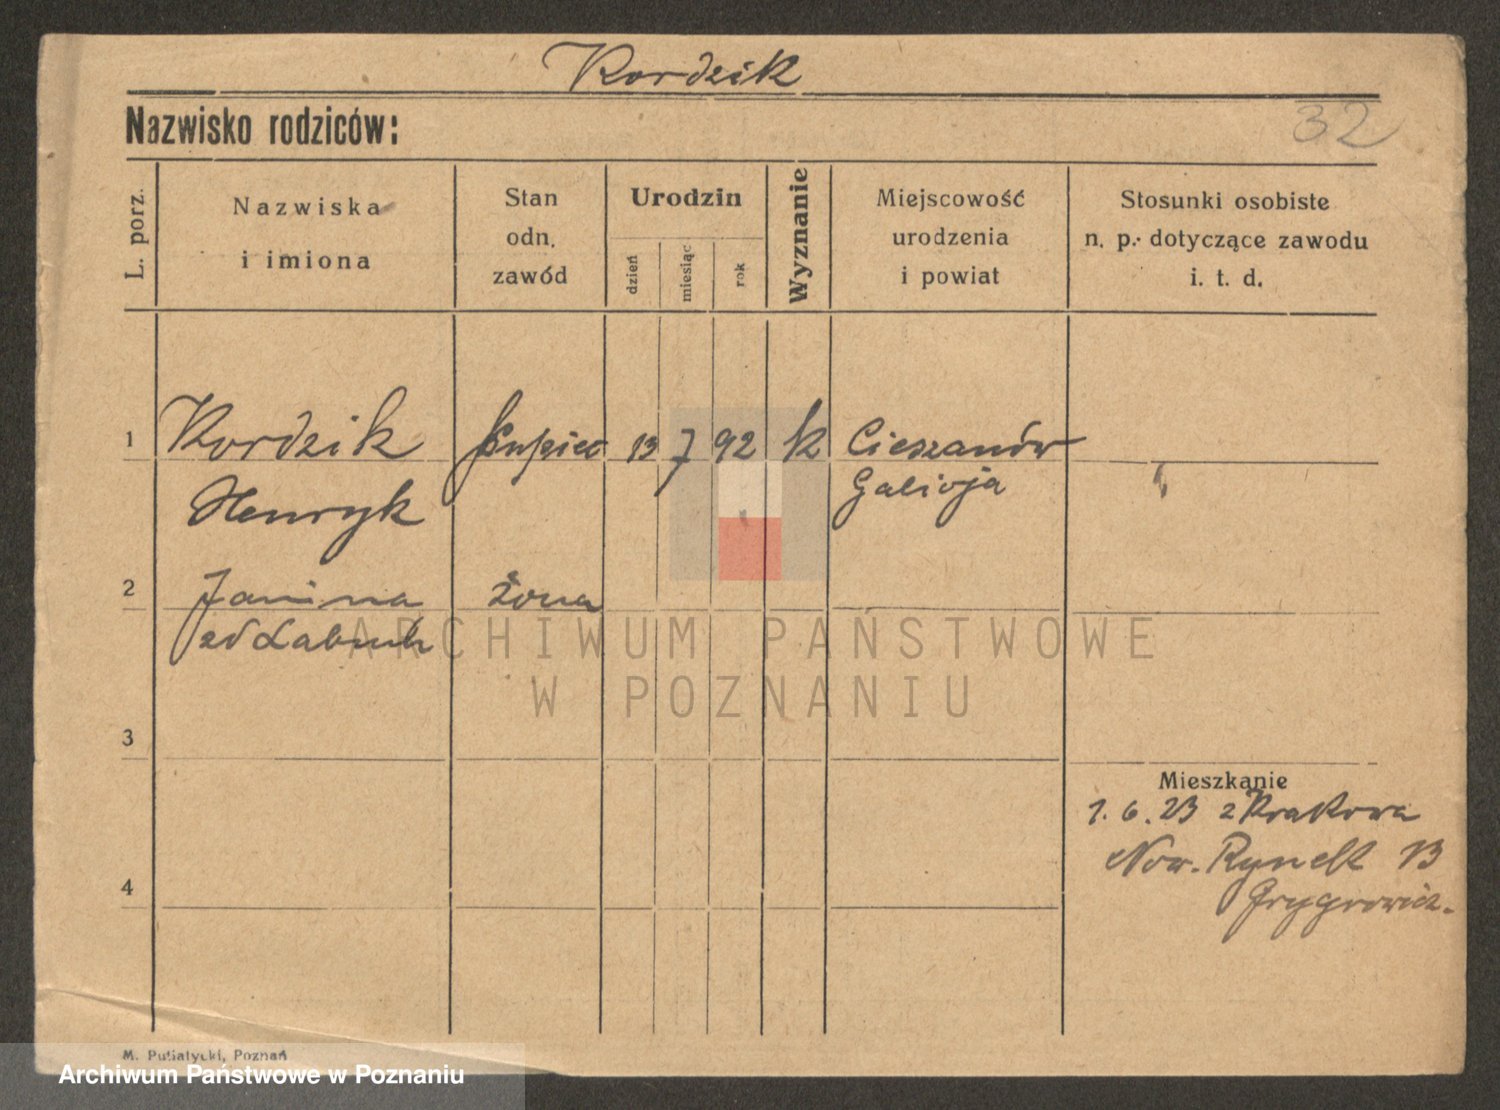 Kordzik
32
Nazwisko rodziców:
L. porz.
Nazwiska
i imiona
Stan
odn.
zawód
Urodzin
dzień
miesiąc
rok
Wyznanie
Miejscowość
urodzenia
i powiat
Stosunki osobiste
n. p. dotyczące zawodu
i. t. d.
1 Kordzik kupiec 13 7 92 k Cieszanów
Henryk Galicja
2 Janina żona
3
Mieszkanie
1. 6. 23 z Krakowa
Now. Rynek 13
4
M. Putiatycki, Poznań
ARCHIWUM PAŃSTWOWE
W POZNANIU
Archiwum Państwowe w Poznaniu